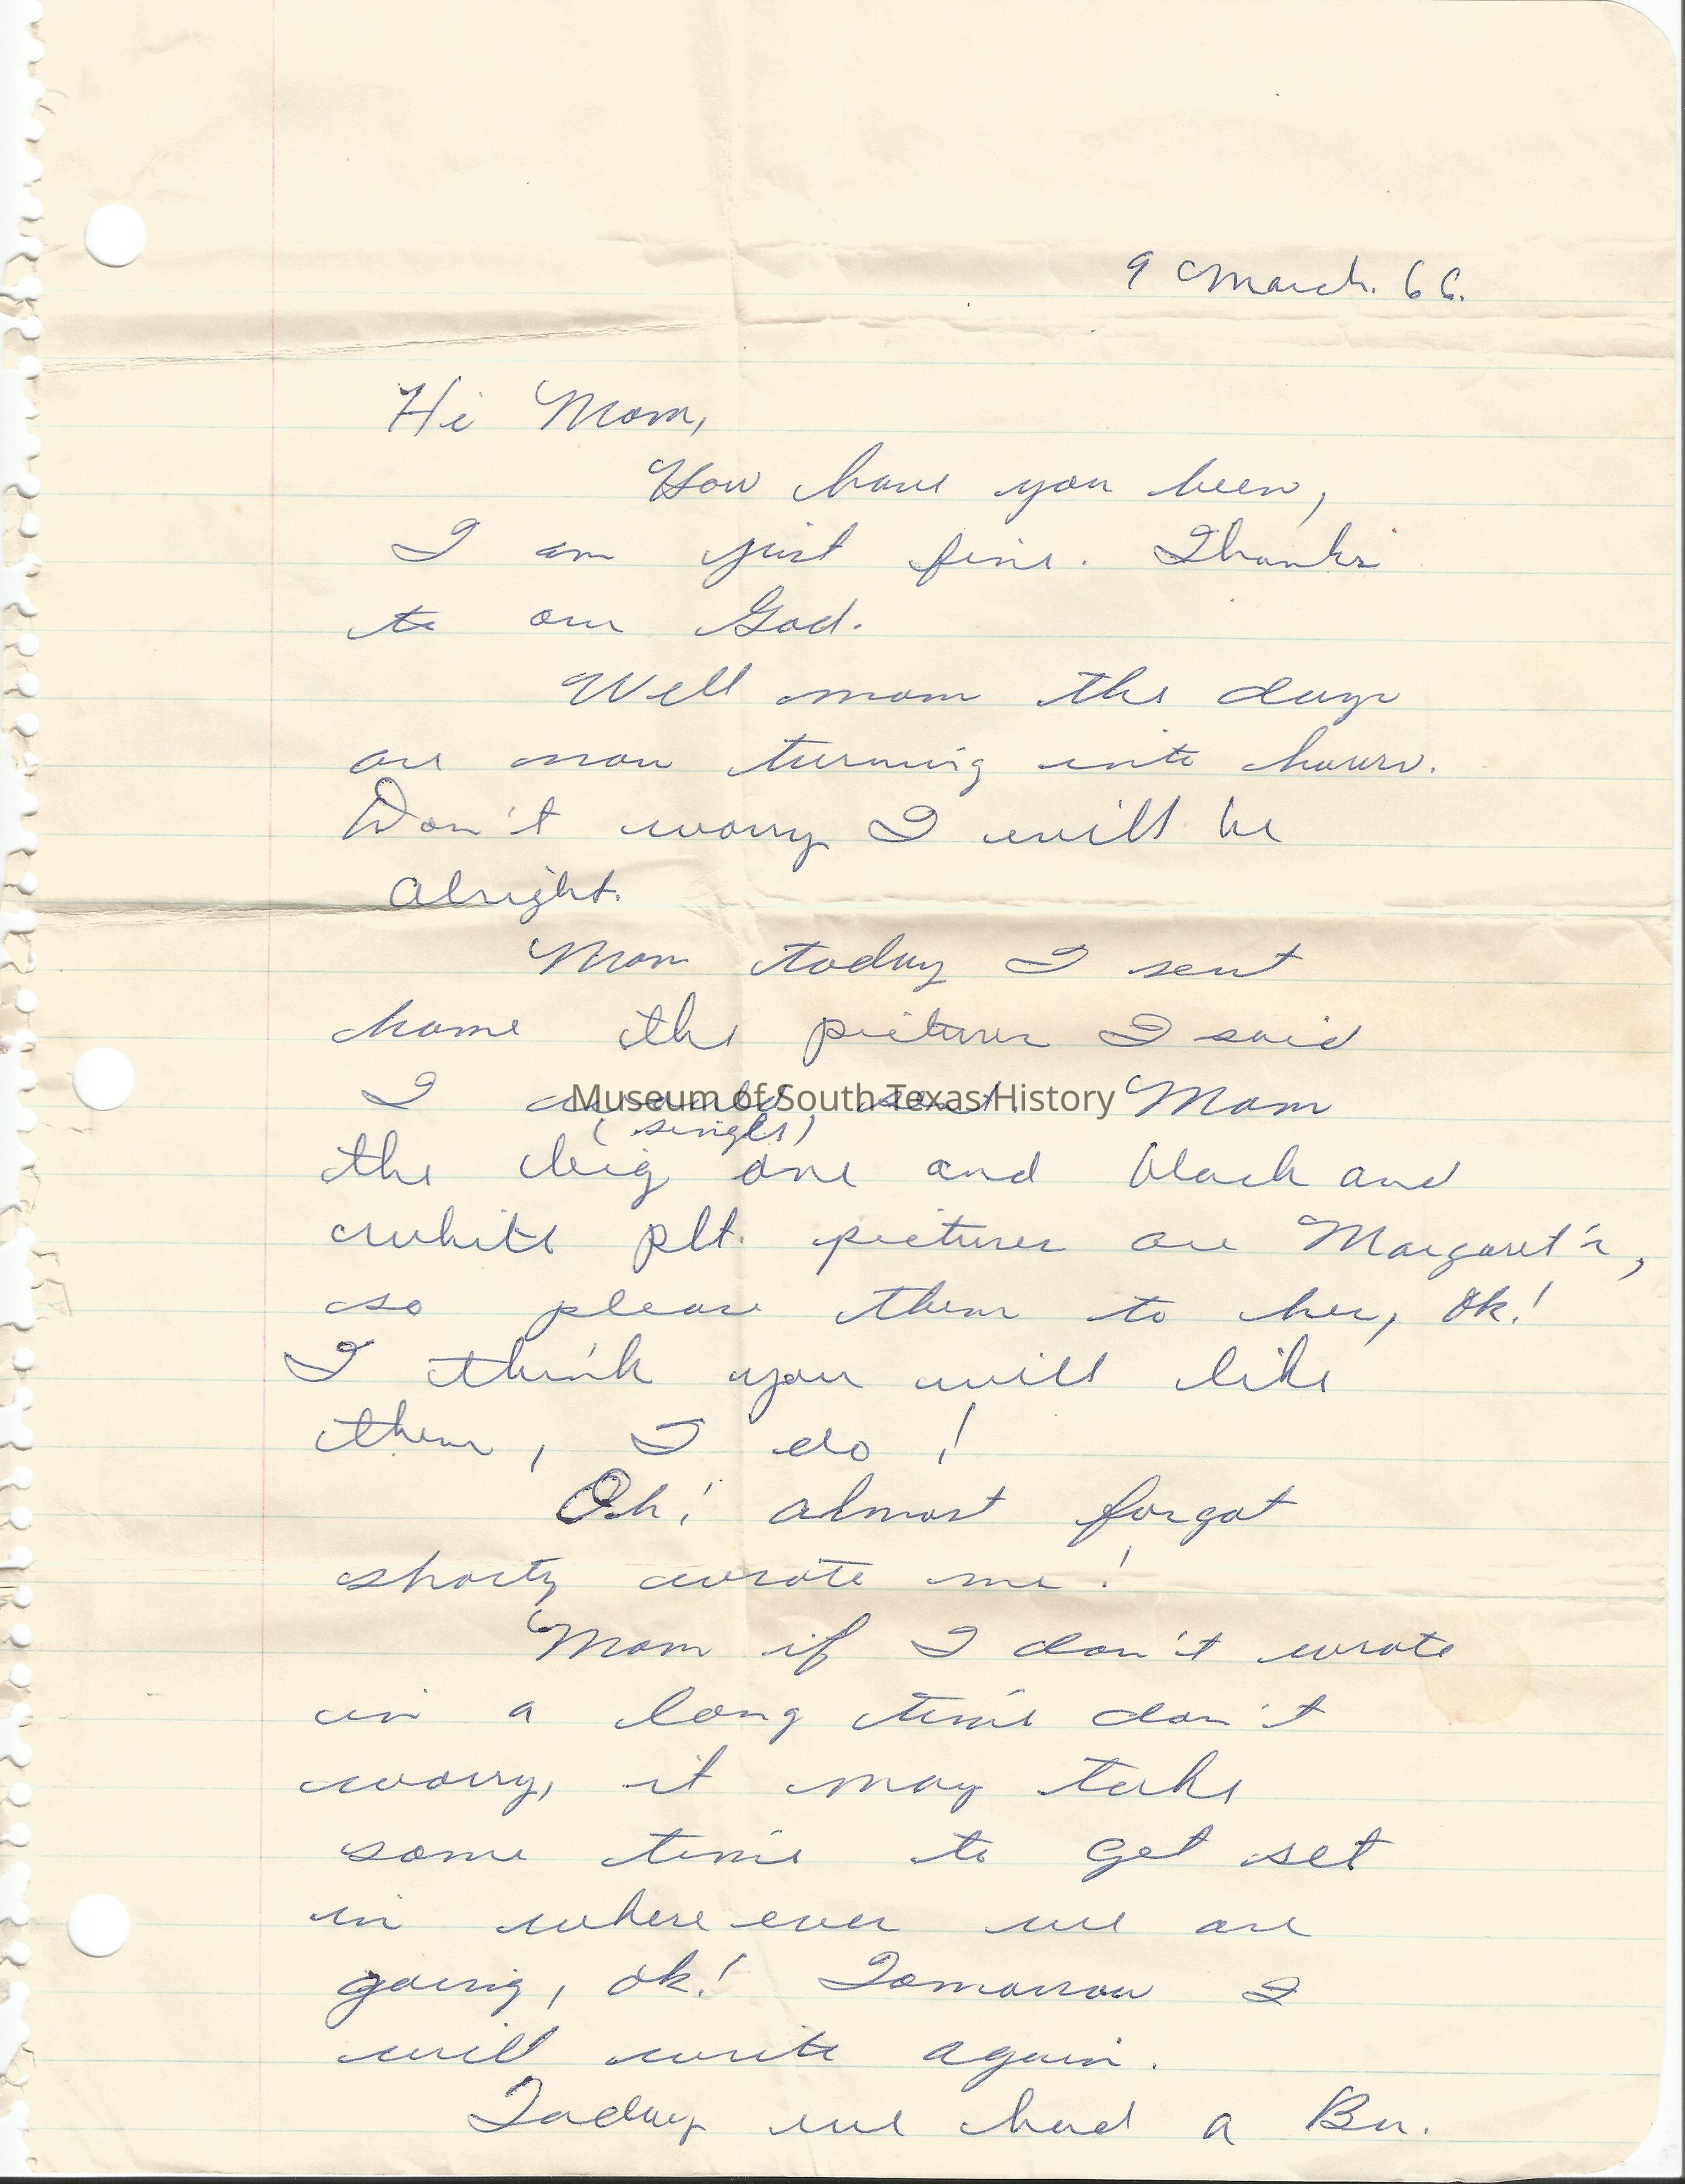 9 March. 66.
Hi Mom,
How have you been,
I am just fine. Thanks
to our God.
Well mom the days
are now turning into hours.
Don't worry I will be
alright.
Mom today I sent
home the pictures I said
I would sent. Mom
Museum of South Texas History
(single)
the big one and black and
white plt. pictures are Margaret's,
so please them to her, ok!
I think you will like
them, I do!
Oh! almost forgot
shorty wrote me!
Mom if I don't wrote
in a long time don't
worry, it may take
some time to get set
in where ever we are
going, ok! Tomorrow I
will write again.
Today we had a Bn.